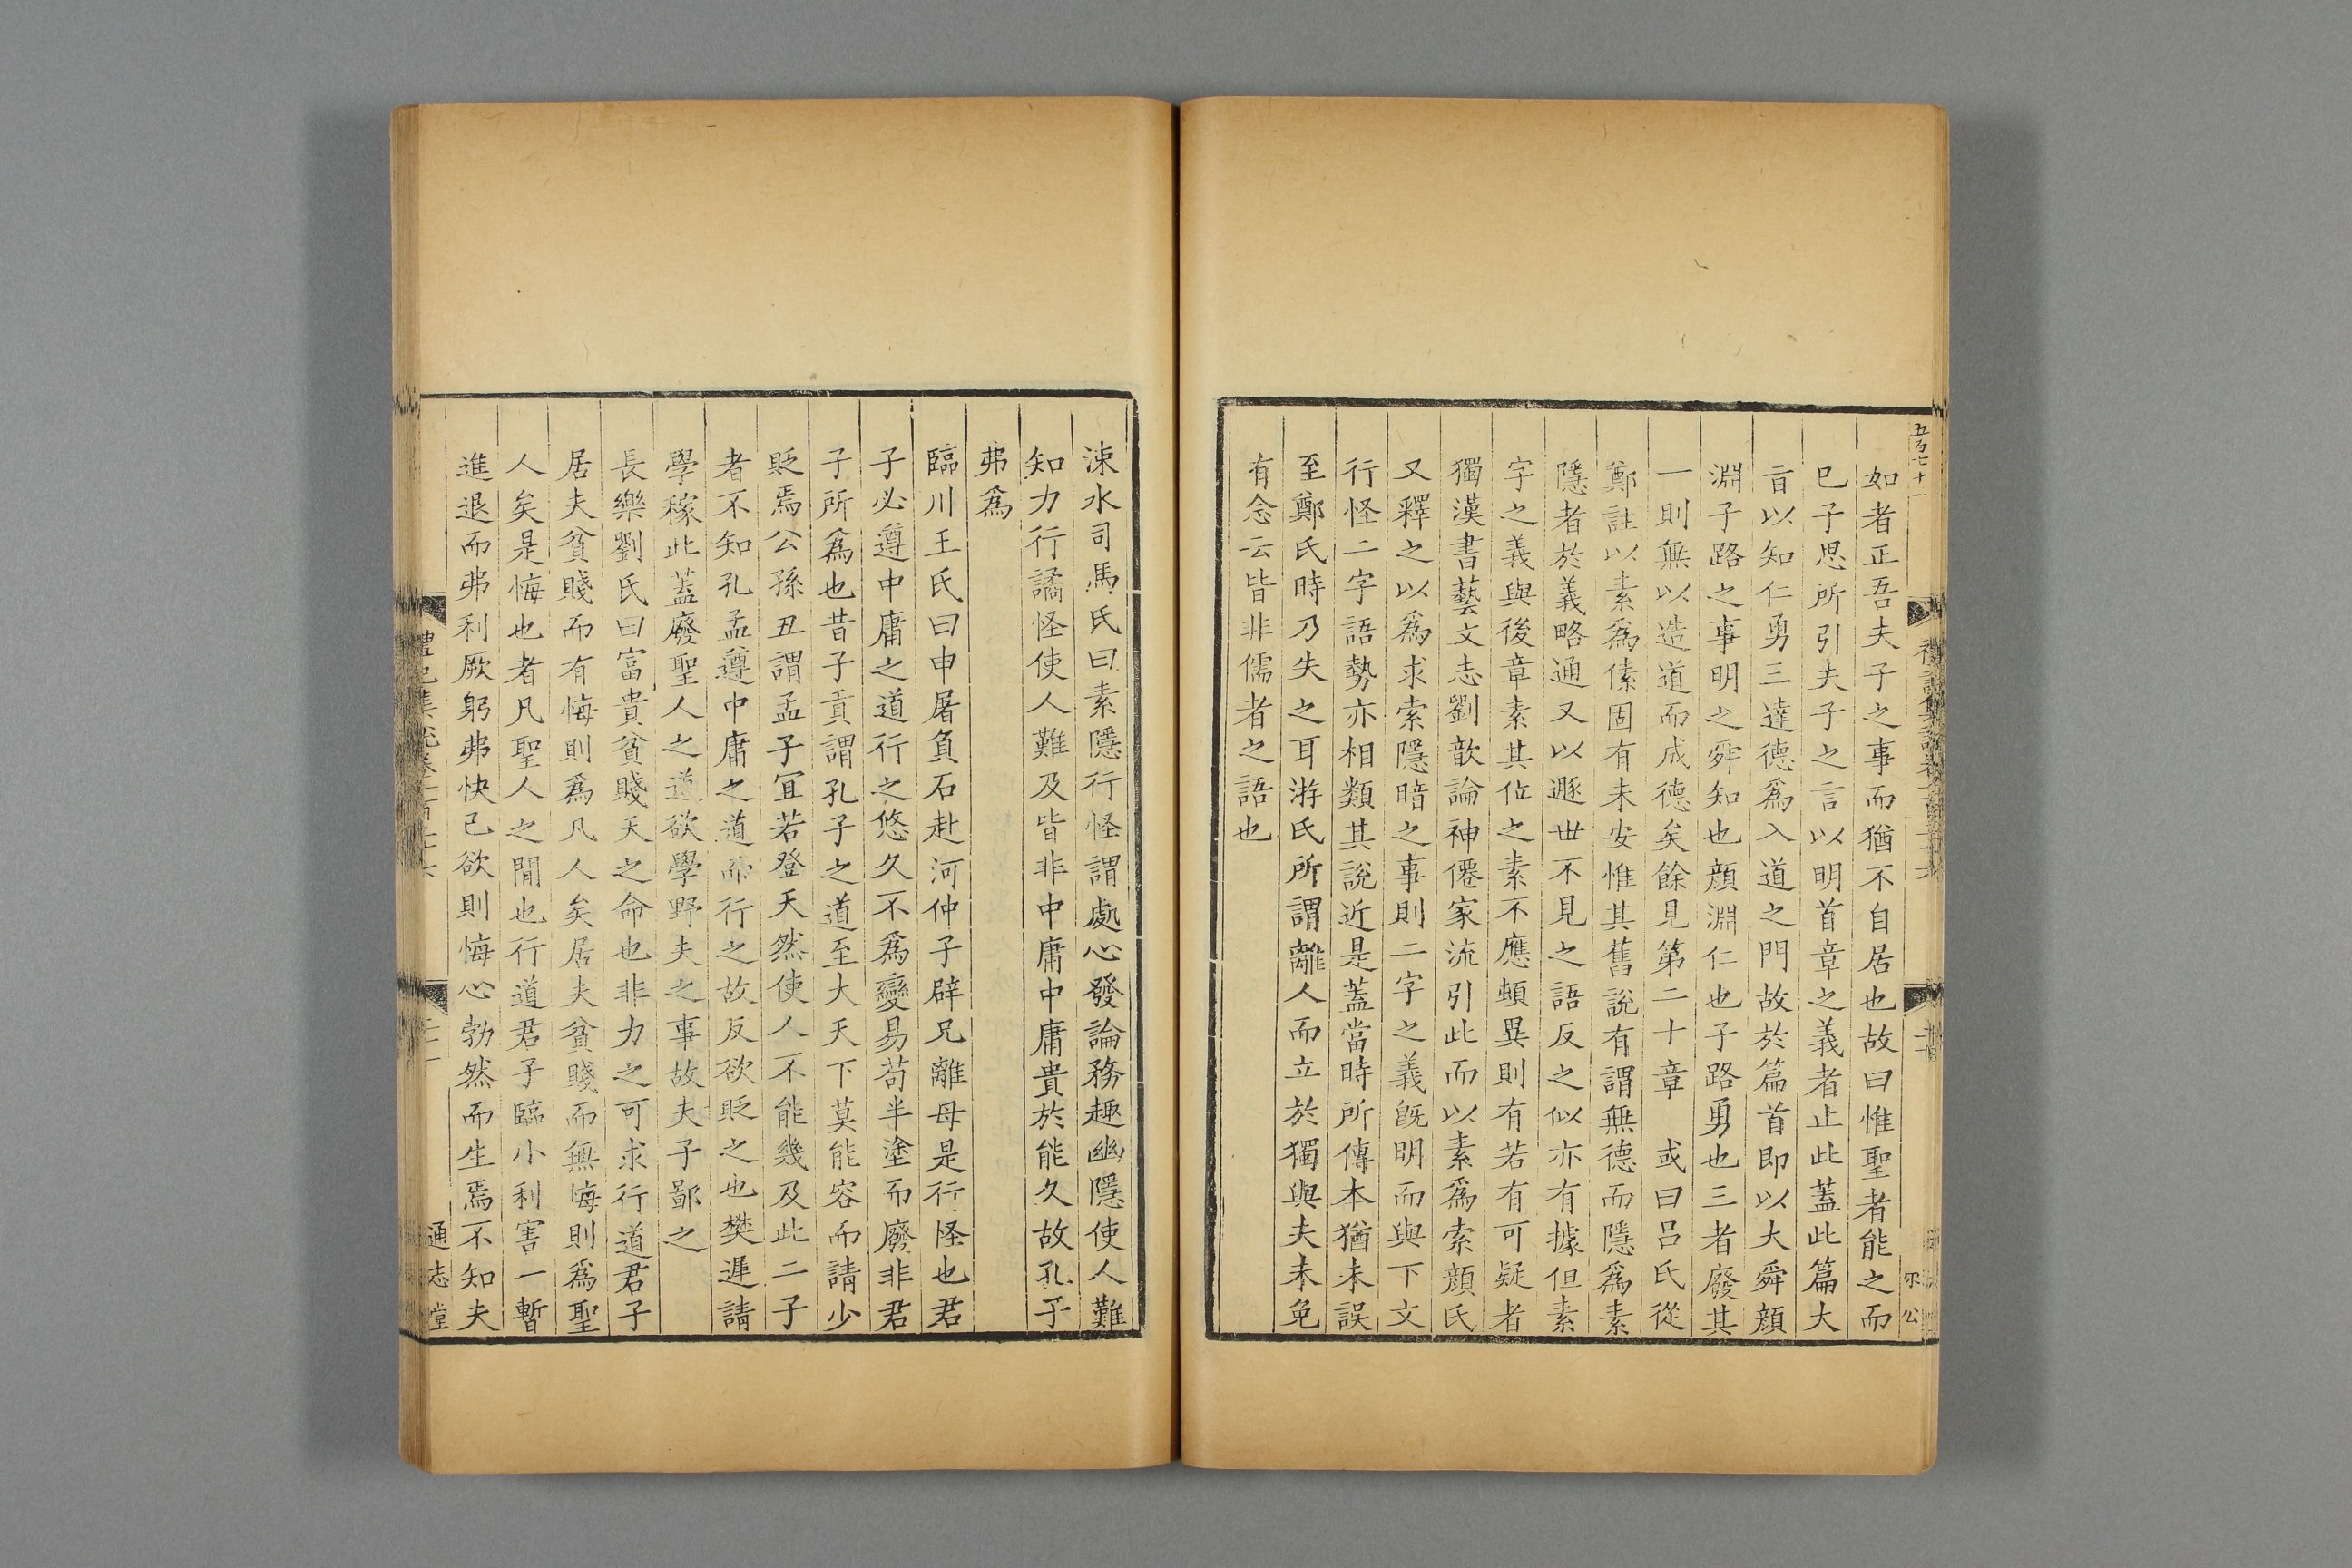 五百七十一
如者正吾夫子之事而猶不自居也故曰惟聖者能之而
已子思所引夫子之言以明首章之義者止此蓋此篇大
㫖以知仁勇三達德為入道之門故於篇首即以大舜顔
淵子路之事明之舜知也顔淵仁也子路勇也三者廢其
一則無以造道而成德矣餘見第二十章　或曰呂氏從
鄭註以素為傃固有未安惟其舊說有謂無德而隱為素
隱者於義略通又以遯世不見之語反之似亦有據但素
字之義與後章素其位之素不應頓異則有若有可疑者
獨漢書藝文志劉歆論神僊家流引此而以素為索顔氏
又釋之以為求索隱暗之事則二字之義旣明而與下文
行怪二字語勢亦相類其說近是蓋當時所傳本猶未誤
至鄭氏時乃失之耳游氏所謂離人而立於獨與夫未免
有念云皆非儒者之語也
涑水司馬氏曰素隱行怪謂處心發論務趣幽隱使人難
知力行譎怪使人難及皆非中庸中庸貴於能久故孔子
弗為
臨川王氏曰申屠負石赴河仲子辟兄離母是行怪也君
子必遵中庸之道行之悠久不為變易苟半塗而廢非君
子所為也昔子貢謂孔子之道至大天下莫能容而請少
貶焉公孫丑謂孟子冝若登天然使人不能幾及此二子
者不知孔孟遵中庸之道而行之故反欲貶之也樊遲請
學稼此蓋廢聖人之道欲學野夫之事故夫子鄙之
長樂劉氏曰富貴貧賤天之命也非力之可求行道君子
居夫貧賤而有悔則為凡人矣居夫貧賤而無悔則為聖
人矣是悔也者凡聖人之閒也行道君子臨小利害一暫
進退而弗利厥躬弗快己欲則悔心勃然而生焉不知夫
通志堂